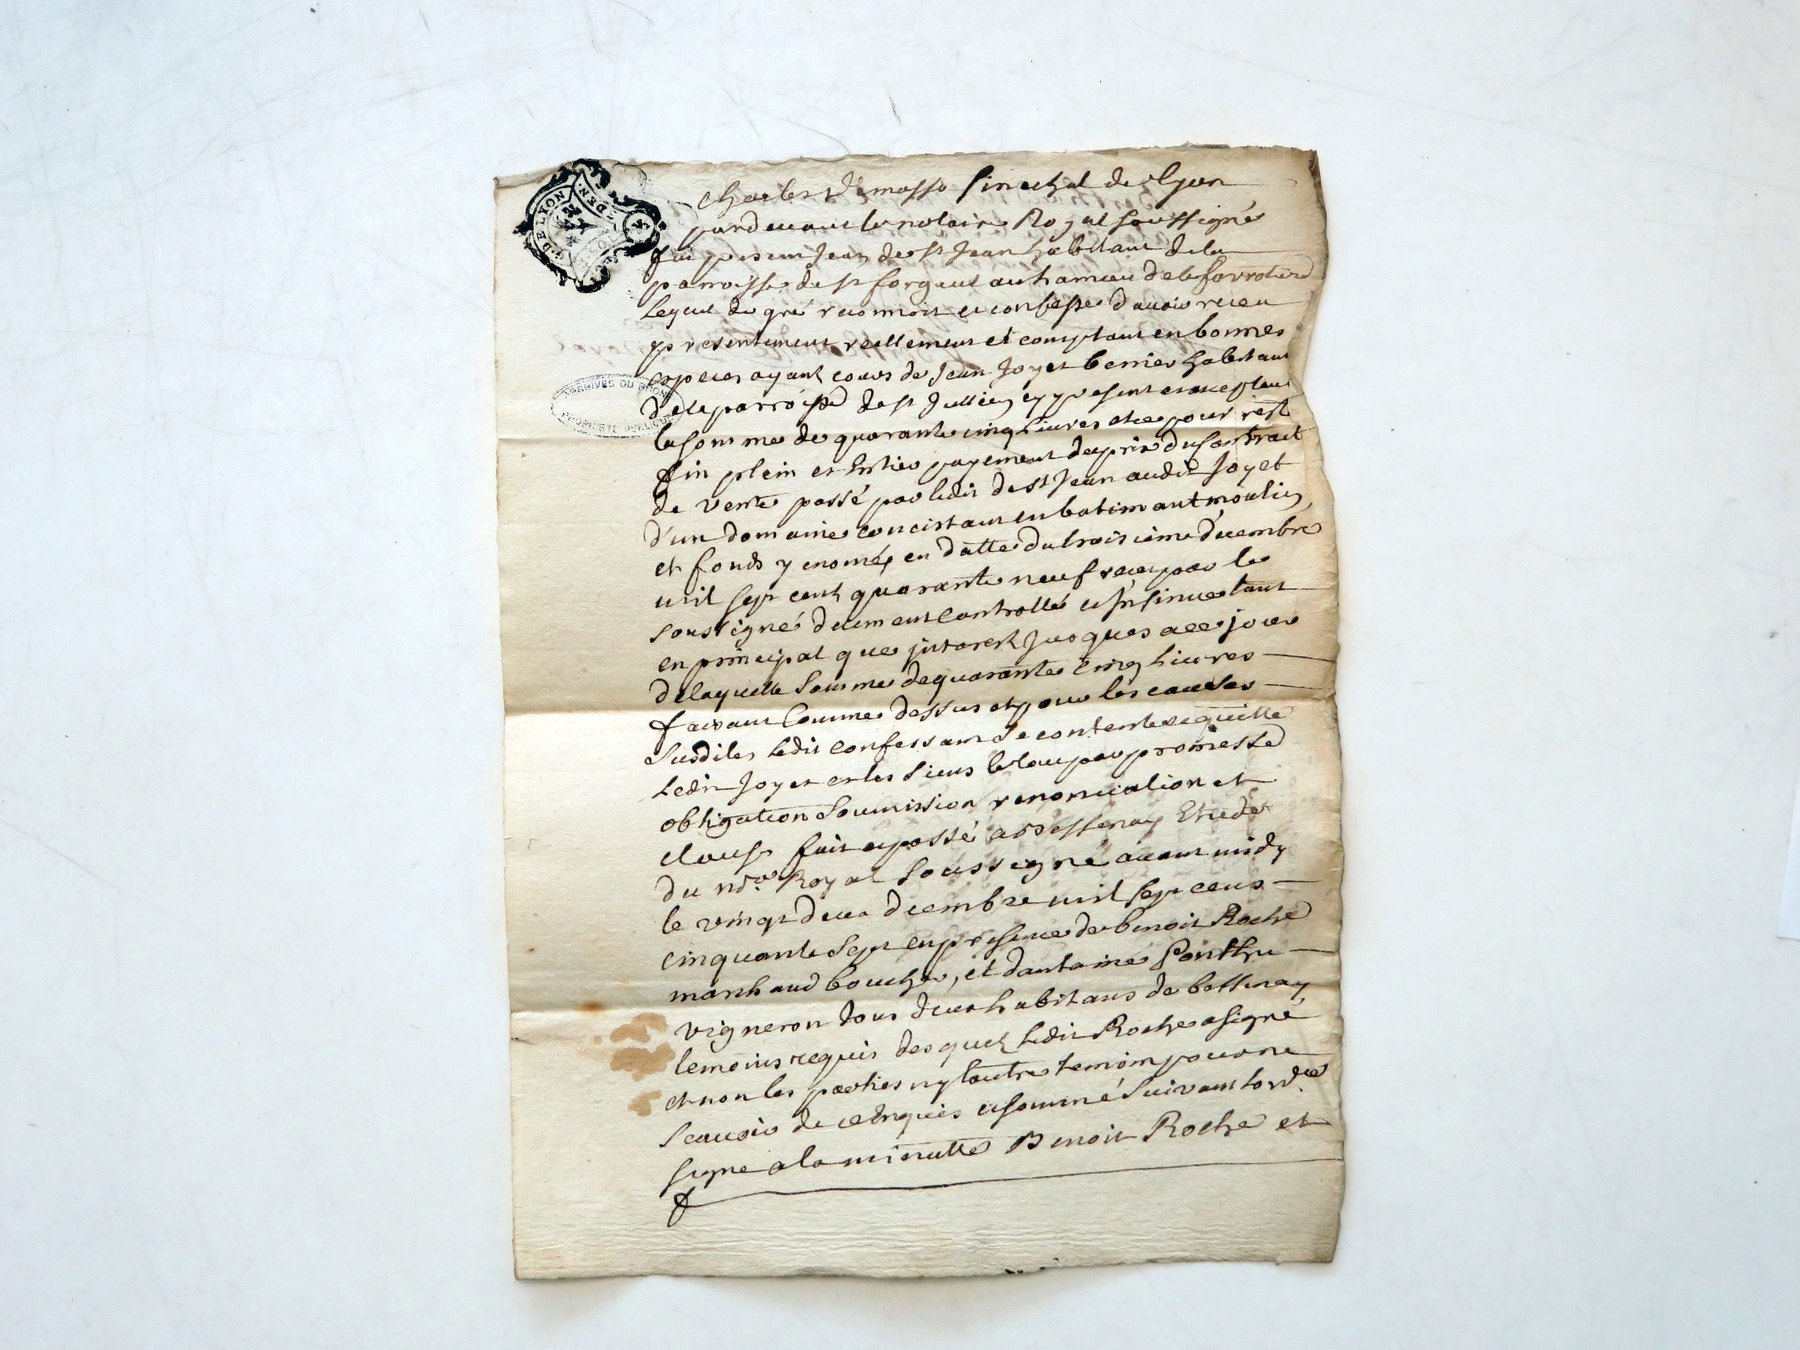 G. DE LYON
DEN.
ARCHIVES DU RHONE
PROPRIETE PUBLIQUE
Charles Demasso sinechal de lyon
pardevant le notaire Royal soussigné
fut present Jean de st Jean habitant dela
parroisse de st forgeut au hameau de la
lequel de gré reconnoit et confesse d'avoir receu
presentement reellement et comptant en bonnes
especes ayant cours de Jean Joyet habitant
dela parroisse de st Jullien cy present et acceptant
la somme de quarante cinq livres et ce pour reste
fin plein et Entier payement du prix du Contract
de vente passé par ledit de st Jean audit Joyet
d'un domaine concistant en batimant moulin
et fonds y enomés en datte du troisieme decembre
mil sept cent quarante neuf receu par le
soussigné deument Controllé et Insinue tant
en principal que interest Jusques a ce jour
de laquelle somme de quarante cinq livres
faisant Comme dessus et pour les causes
susdites ledit confessant se contente et quitte
ledit Joyet et les siens le tout par promesse
obligation soumission renonciation et
clause fait et passé a Bessenay Etude
du nore Royal soussigné avant midy
le vingt deux decembre mil sept cens
cinquante sept en presence de benoit Roche
marchand boucher, et dantoine Ponthu
vigneron tous deux habitans de bessenay
temoins requis desquels ledit Roche a signé
et non les parties ny lautre temoin pour ne
scavoir de ce Enquis et sommé suivant lordce
signe a la minutte Benoit Roche et